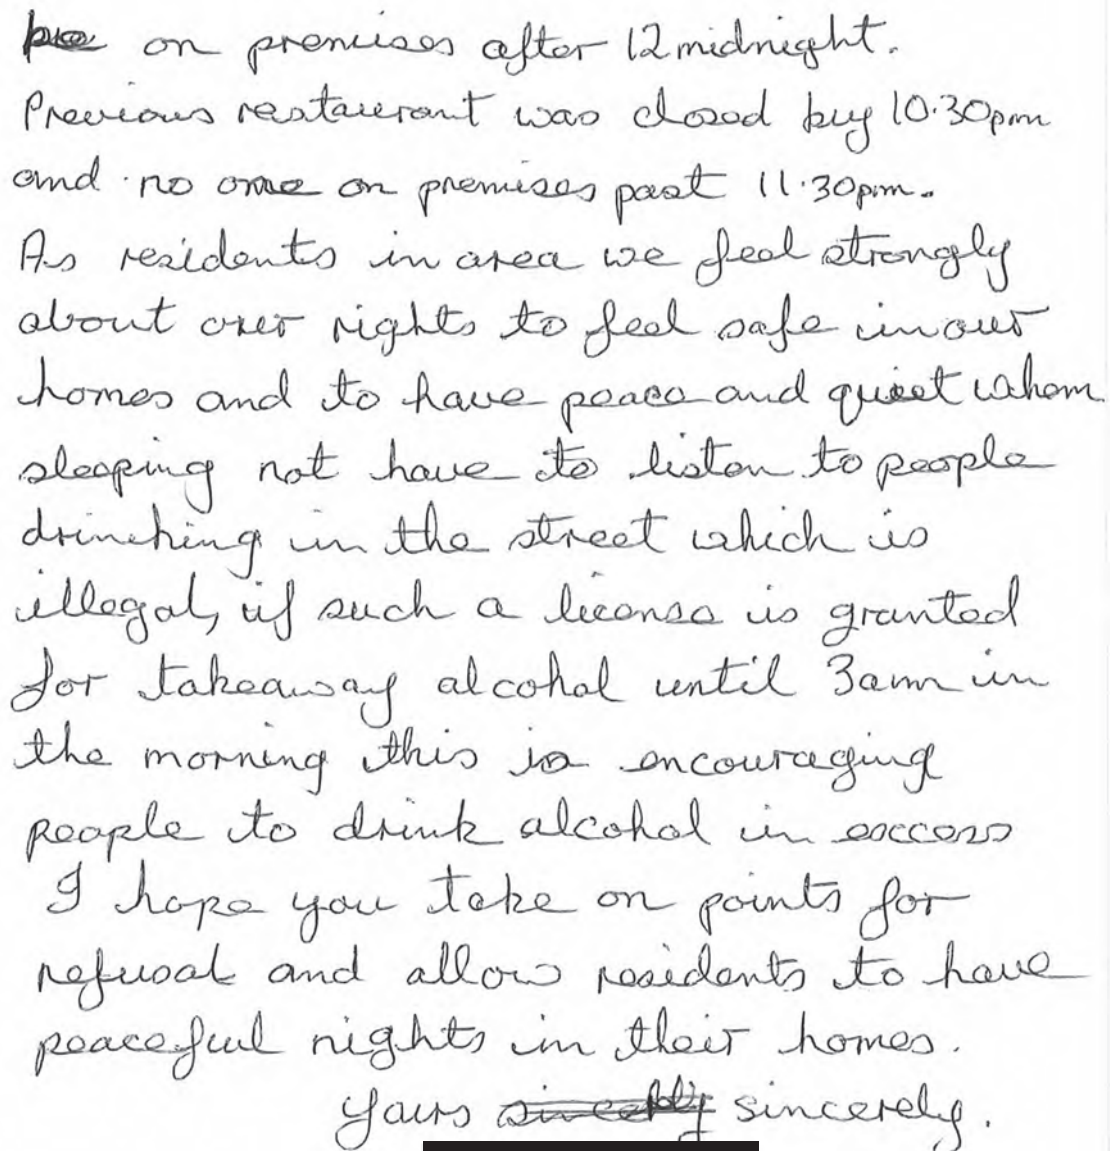 be on premises after 12 midnight.
Previous restaurant was closed buy 10.30pm
and no one on premises past 11.30pm.
As residents in area we feel strongly
about our rights to feel safe in our
homes and to have peace and quiet when
sleeping not have to listen to people
drinking in the street which is
illegal, if such a license is granted
for takeaway alcohol until 3am in
the morning this is encouraging
people to drink alcohol in excess
I hope you take on points for
refusal and allow residents to have
peaceful nights in their homes.
Yours sincerely.